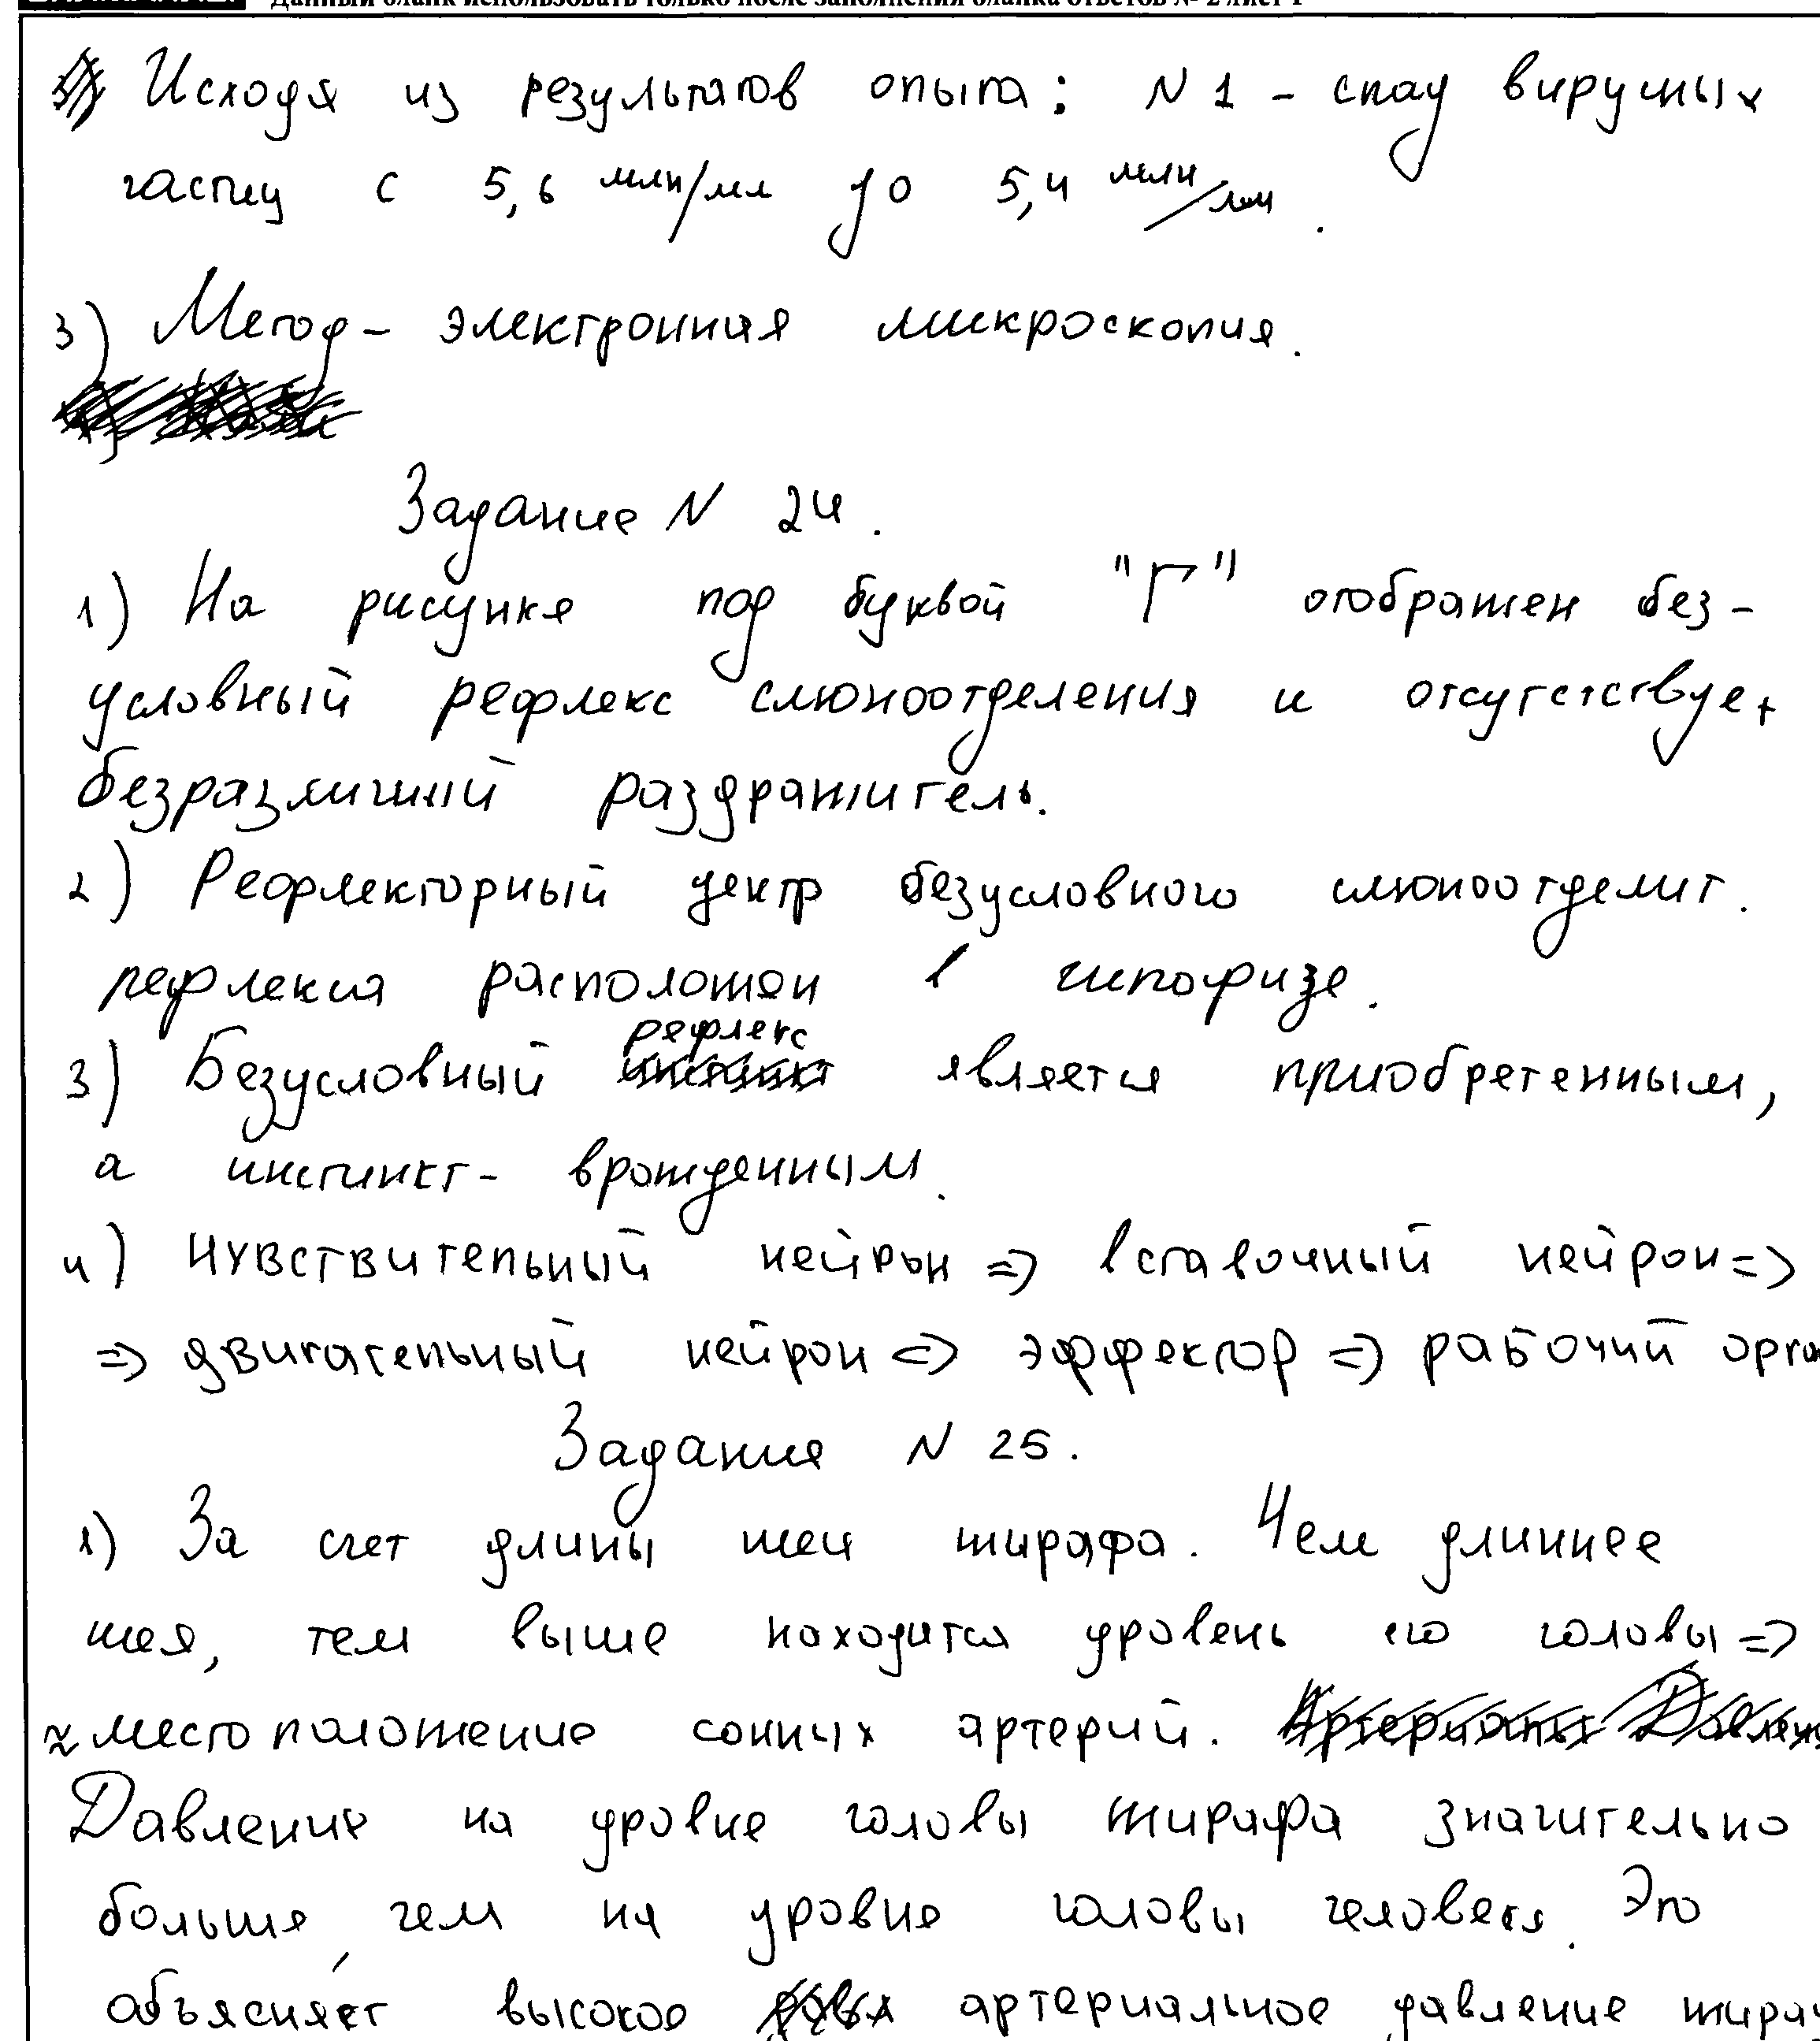 Данный бланк использовать только после заполнения бланка ответов № 2 лист 1
Исходя из результатов опыта: N 1 - спад вирусных
частиц с 5,6 млн/мл до 5,4 млн/мл.
3) Метод - электронная микроскопия.
Задание N 24.
1) На рисунке под буквой "Г" отображен без-
условный рефлекс слюноотделения и отсутствует
безразличный раздражитель.
2) Рефлекторный центр безусловного слюноотделит.
рефлекса расположен в гипофизе.
рефлекс
3) Безусловный является приобретенным,
а инстинкт - врожденным.
4) Чувствительный нейрон => вставочный нейрон =>
=> двигательный нейрон => эффектор => рабочий орга
Задание N 25.
1) За счет длины шеи жирафа. Чем длиннее
шея, тем выше находится уровень его головы =>
≈ местоположение сонных артерий.
Давление на уровне головы жирафа значительно
больше, чем на уровне головы человека. Это
объясняет высокое артериальное давление жира